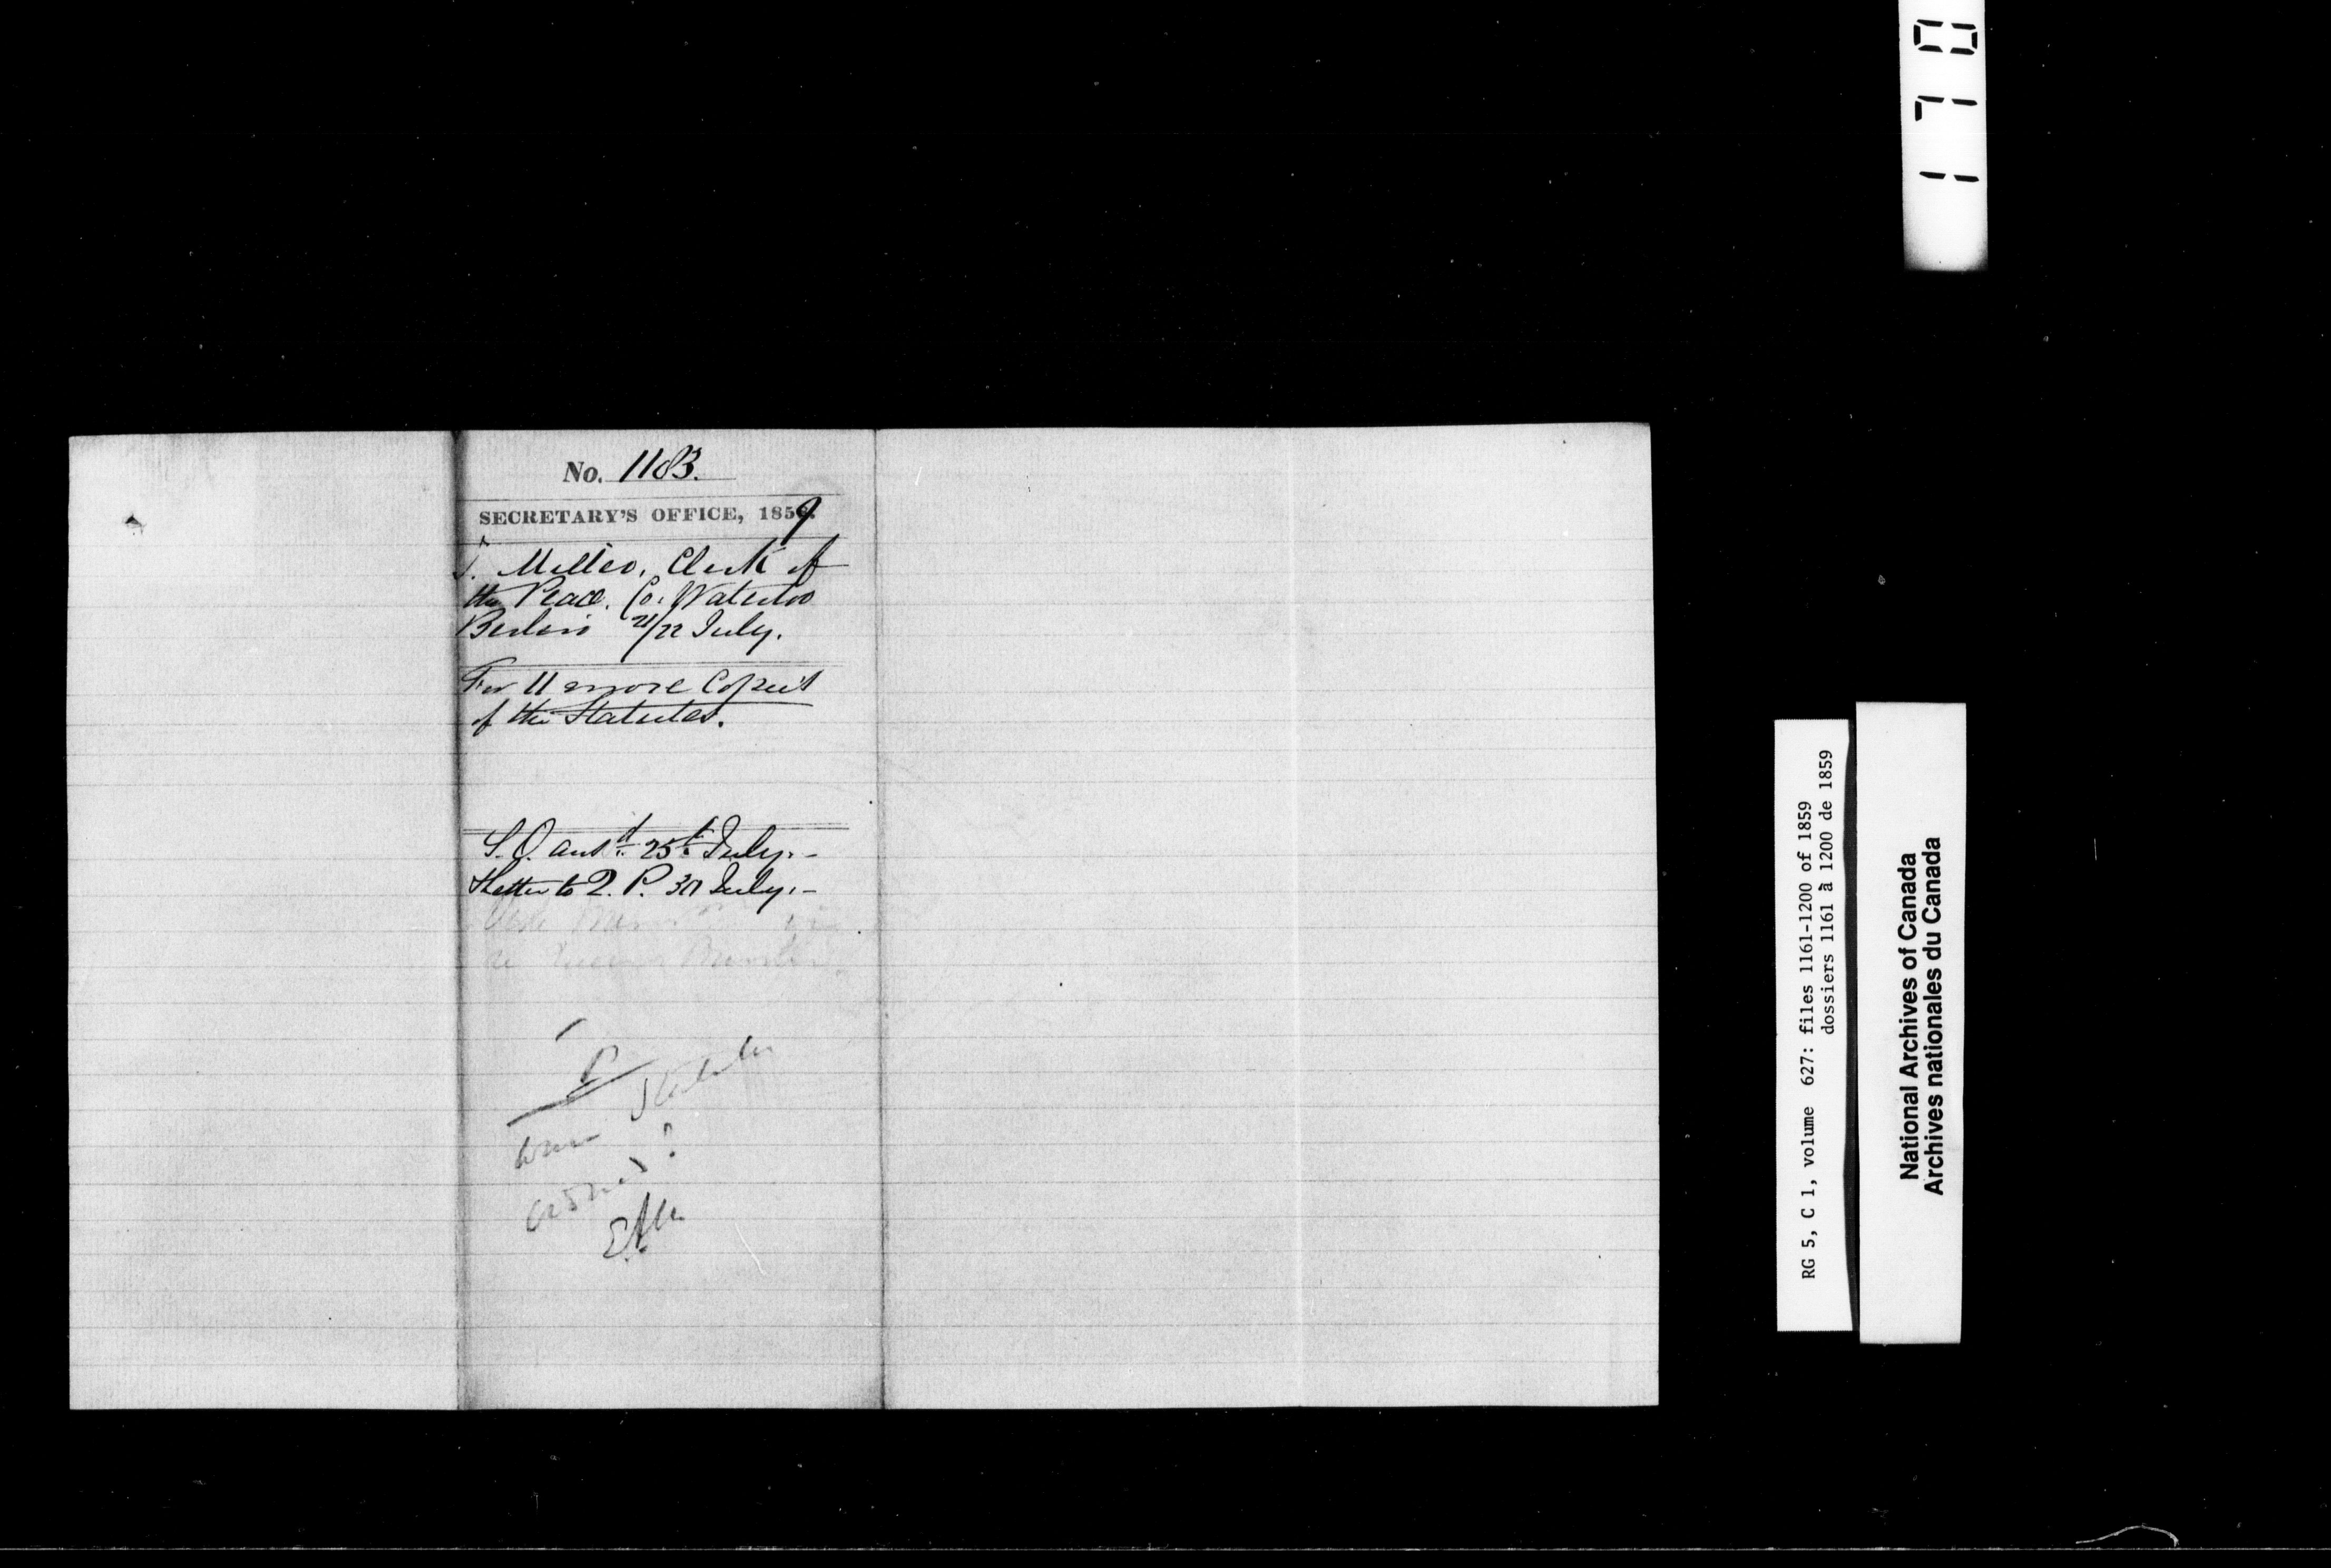 No. 1183.
SECRETARY'S OFFICE, 1859.
Miller, Clerk of
the Peace. Co. Waterloo
Berlin 21/22 July.
For 11 more Copies
of the Statutes.
S.O. ansd. 25th July.-
Letter to Q. P. 30 July.-
P
Statutes
?
170
RG 5, C 1, volume 627: files 1161-1200 of 1859
dossiers 1161 à 1200 de 1859
National Archives of Canada
Archives nationales du Canada